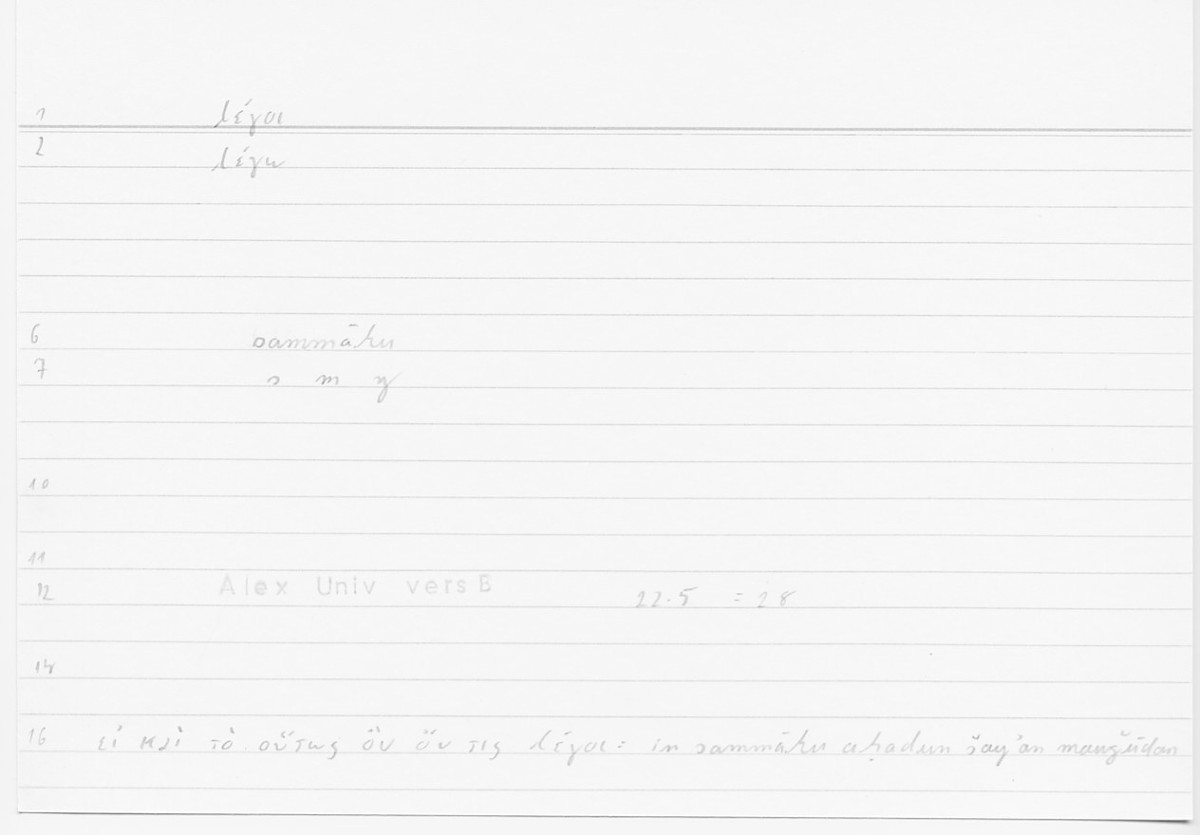 1 λέγοι
2 λέγω
6 sammāhu
7 s m y
10
11
12 Alex Univ vers E 22.5 = 28
14
16 εἰ καὶ τὸ οὕτως ὂν ὄν τις λέγοι = in sammāhu aḥadun šayʾan mauǧūdan